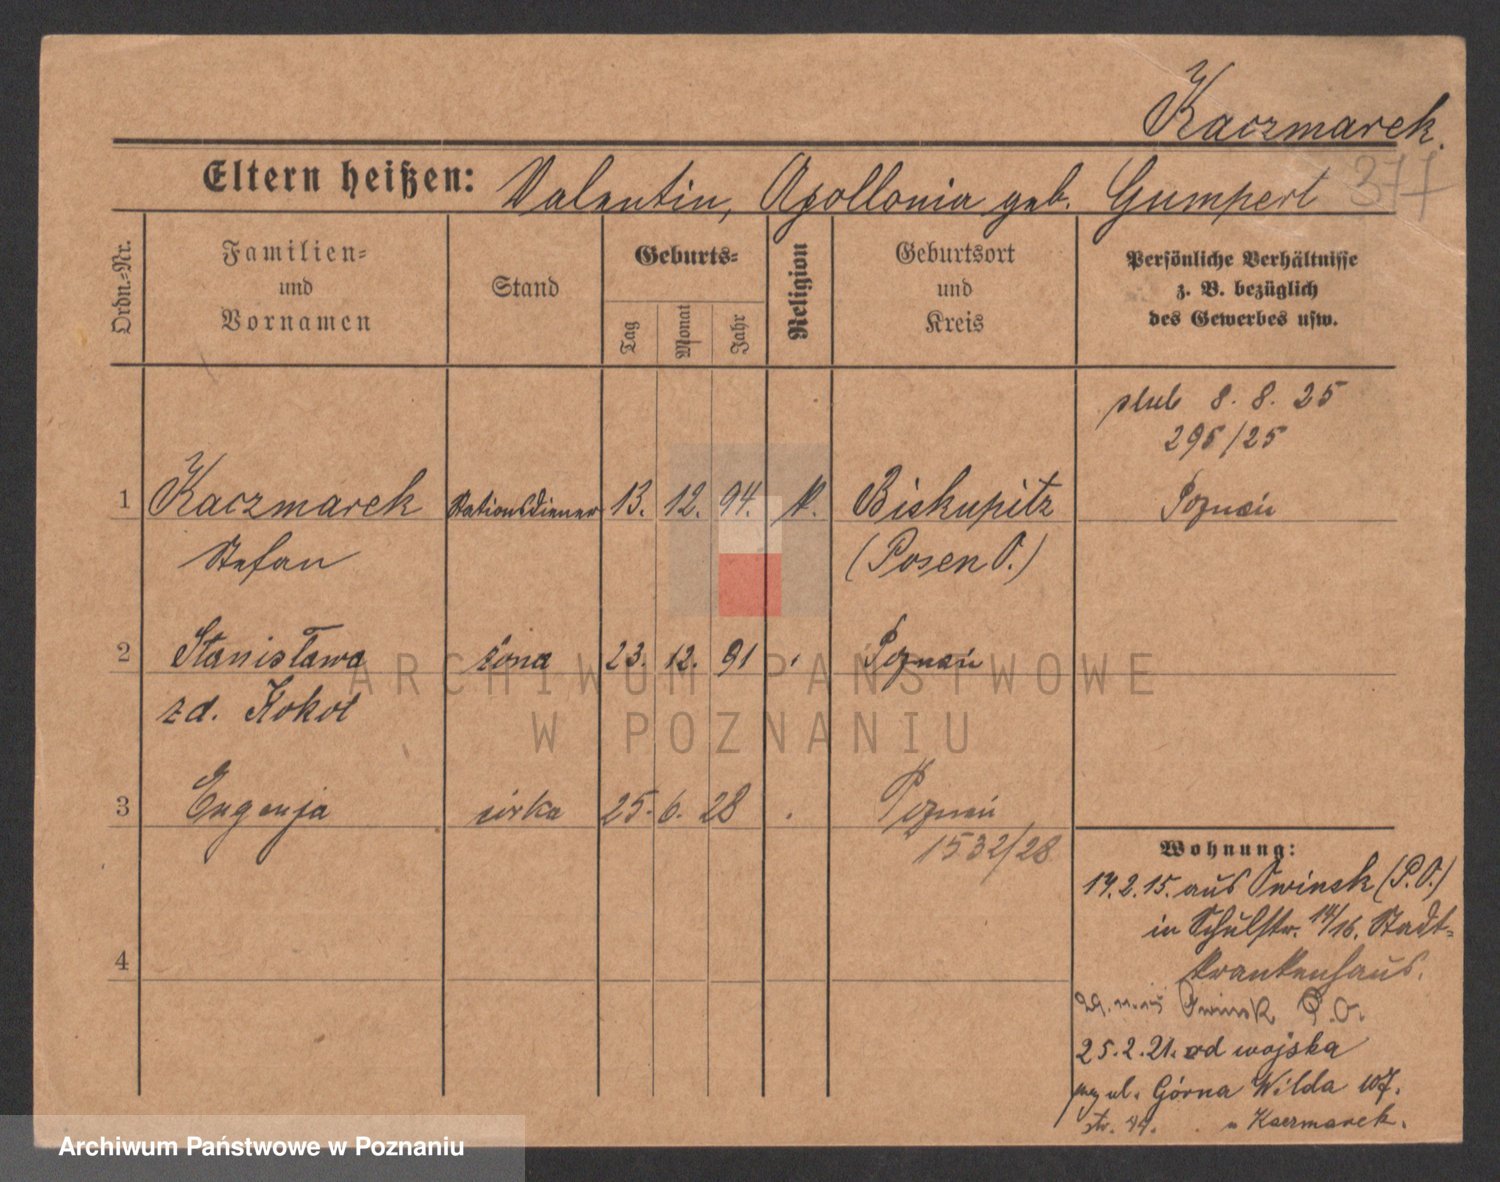 Kaczmarek.
377
Eltern heißen: Valentin, Apollonia geb. Gumpert
Ordn.-Nr.
Familien-
und
Vornamen
Stand
Geburts-
Tag
Monat
Jahr
Religion
Geburtsort
und
Kreis
Persönliche Verhältnisse
z. B. bezüglich
des Gewerbes usw.
ślub 8. 8. 25
295/25
1 Kaczmarek Stationsdiener 13. 12. 94. k. Biskupitz Poznań
Stefan (Posen O.)
2 Stanisława żona 23. 12. 91 Poznań
zd. Kokot
3 Eugenja córka 25. 6. 28 Poznań
1532/28
4
Wohnung:
14.2.15. aus Owinsk (P.O.)
in Schulstr. 14/16. Stadt-
krankenhaus.
Owinsk P.O.
25.2.21. od wojska
ul. Górna Wilda 107.
str. 44. u Kaczmarek.
ARCHIWUM PAŃSTWOWE
W POZNANIU
Archiwum Państwowe w Poznaniu